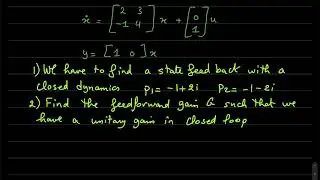 ẋ = [2 3; -1 4] x + [0; 1] u
y = [1 0] x
1) We have to find a state feed back with a
closed dynamics p1 = -1+2i p2 = -1-2i
2) Find the feedforward gain G such that we
have a unitary gain in closed loop